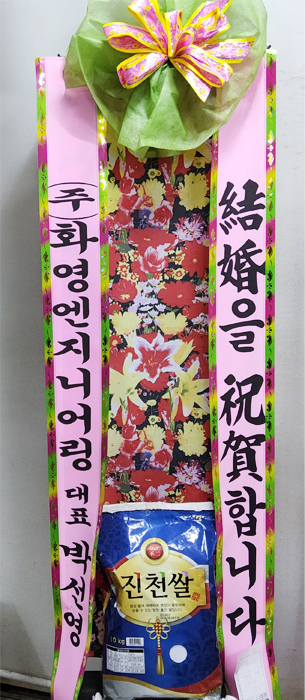 結婚을 祝賀합니다
(주)화영엔지니어링 대표 박선영
진천쌀
10kg